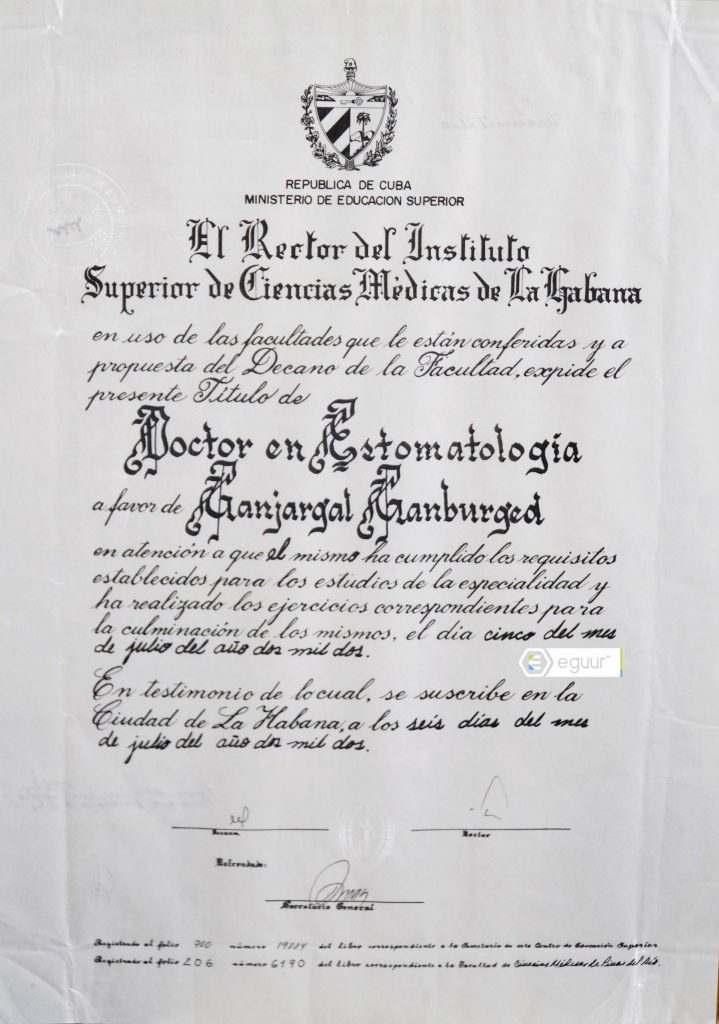 REPUBLICA DE CUBA
MINISTERIO DE EDUCACION SUPERIOR
El Rector del Instituto
Superior de Ciencias Médicas de La Habana
en uso de las facultades que le están conferidas y a
propuesta del Decano de la Facultad, expide el
presente Título de
Doctor en Estomatología
a favor de Ganjargal Ganburged
en atención a que el mismo ha cumplido los requisitos
establecidos para los estudios de la especialidad y
ha realizado los ejercicios correspondientes para
la culminación de los mismos, el día cinco del mes
de julio del año dos mil dos.
eguur™
En testimonio de lo cual, se suscribe en la
Ciudad de La Habana, a los seis días del mes
de julio del año dos mil dos.
Decano
Rector
Refrendado:
Secretario General
Registrado al folio 700 número 19884 del libro correspondiente a la Secretaría de este Centro de Educación Superior
Registrado al folio 206 número 6190 del libro correspondiente a la Facultad de Ciencias Médicas de Pinar del Río.